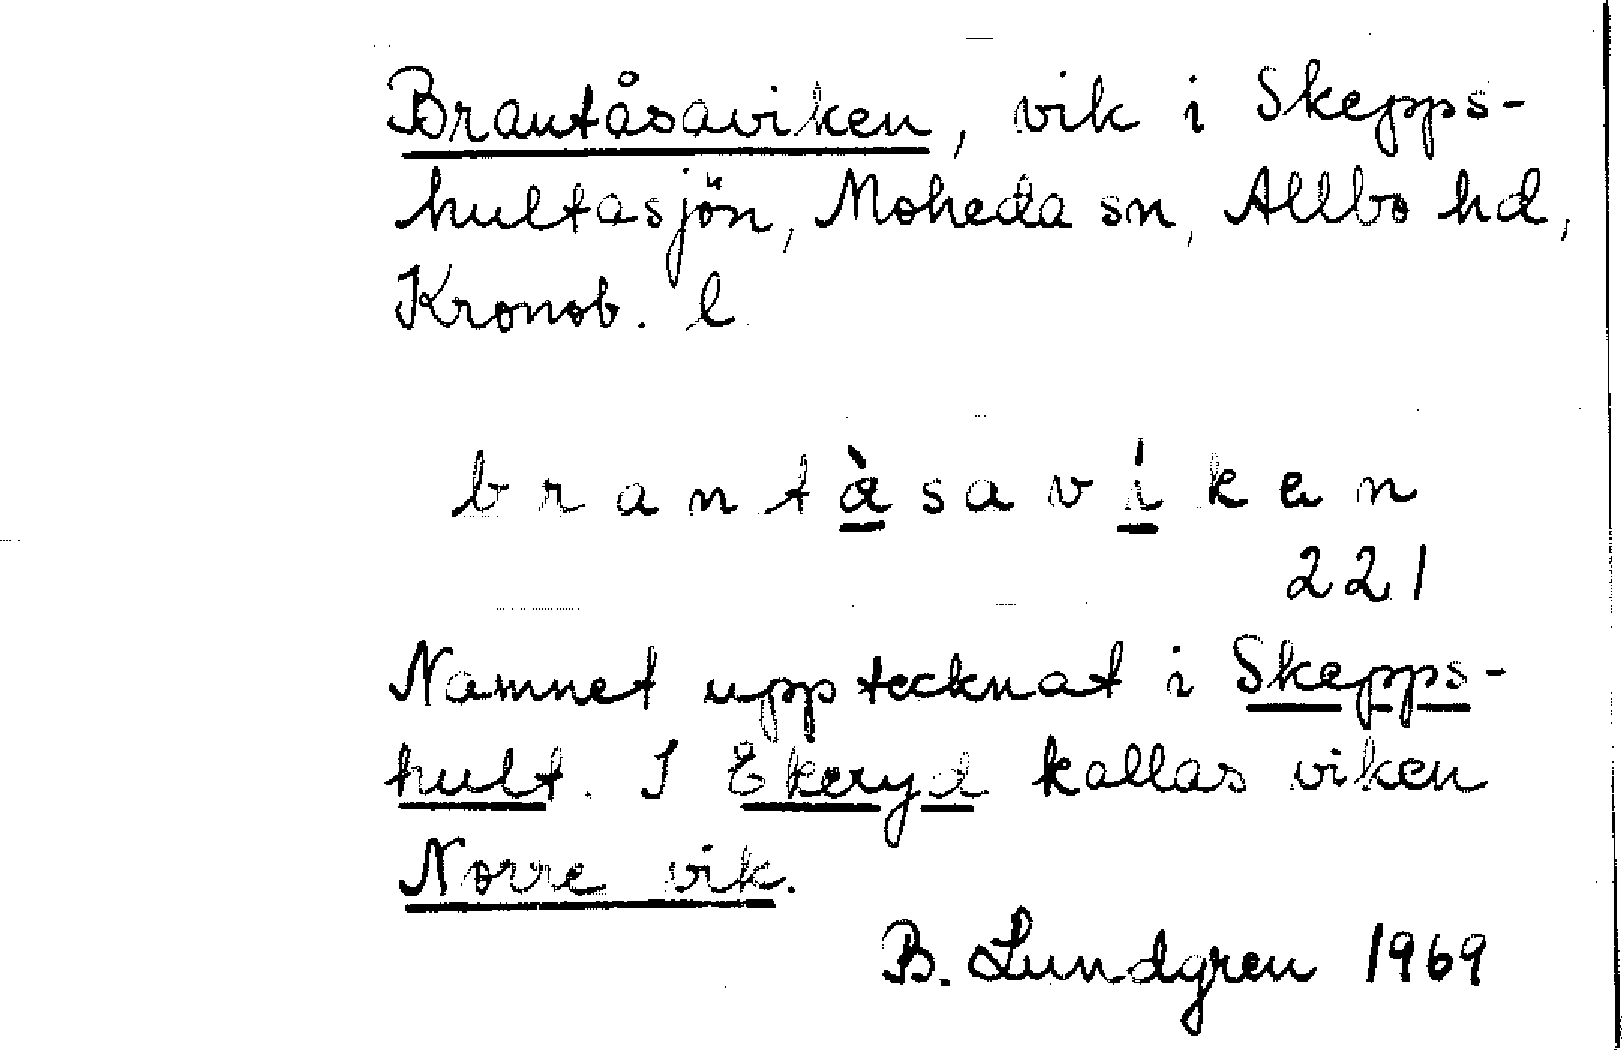 Brantåsaviken, vik i Skepps-
hultasjön, Moheda sn, Allbo hd,
Kronob. l
brantàsavíken
221
Namnet upptecknat i Skepps-
hult. I Ekeryd kallas viken
Norre vik.
B. Lundgren 1969